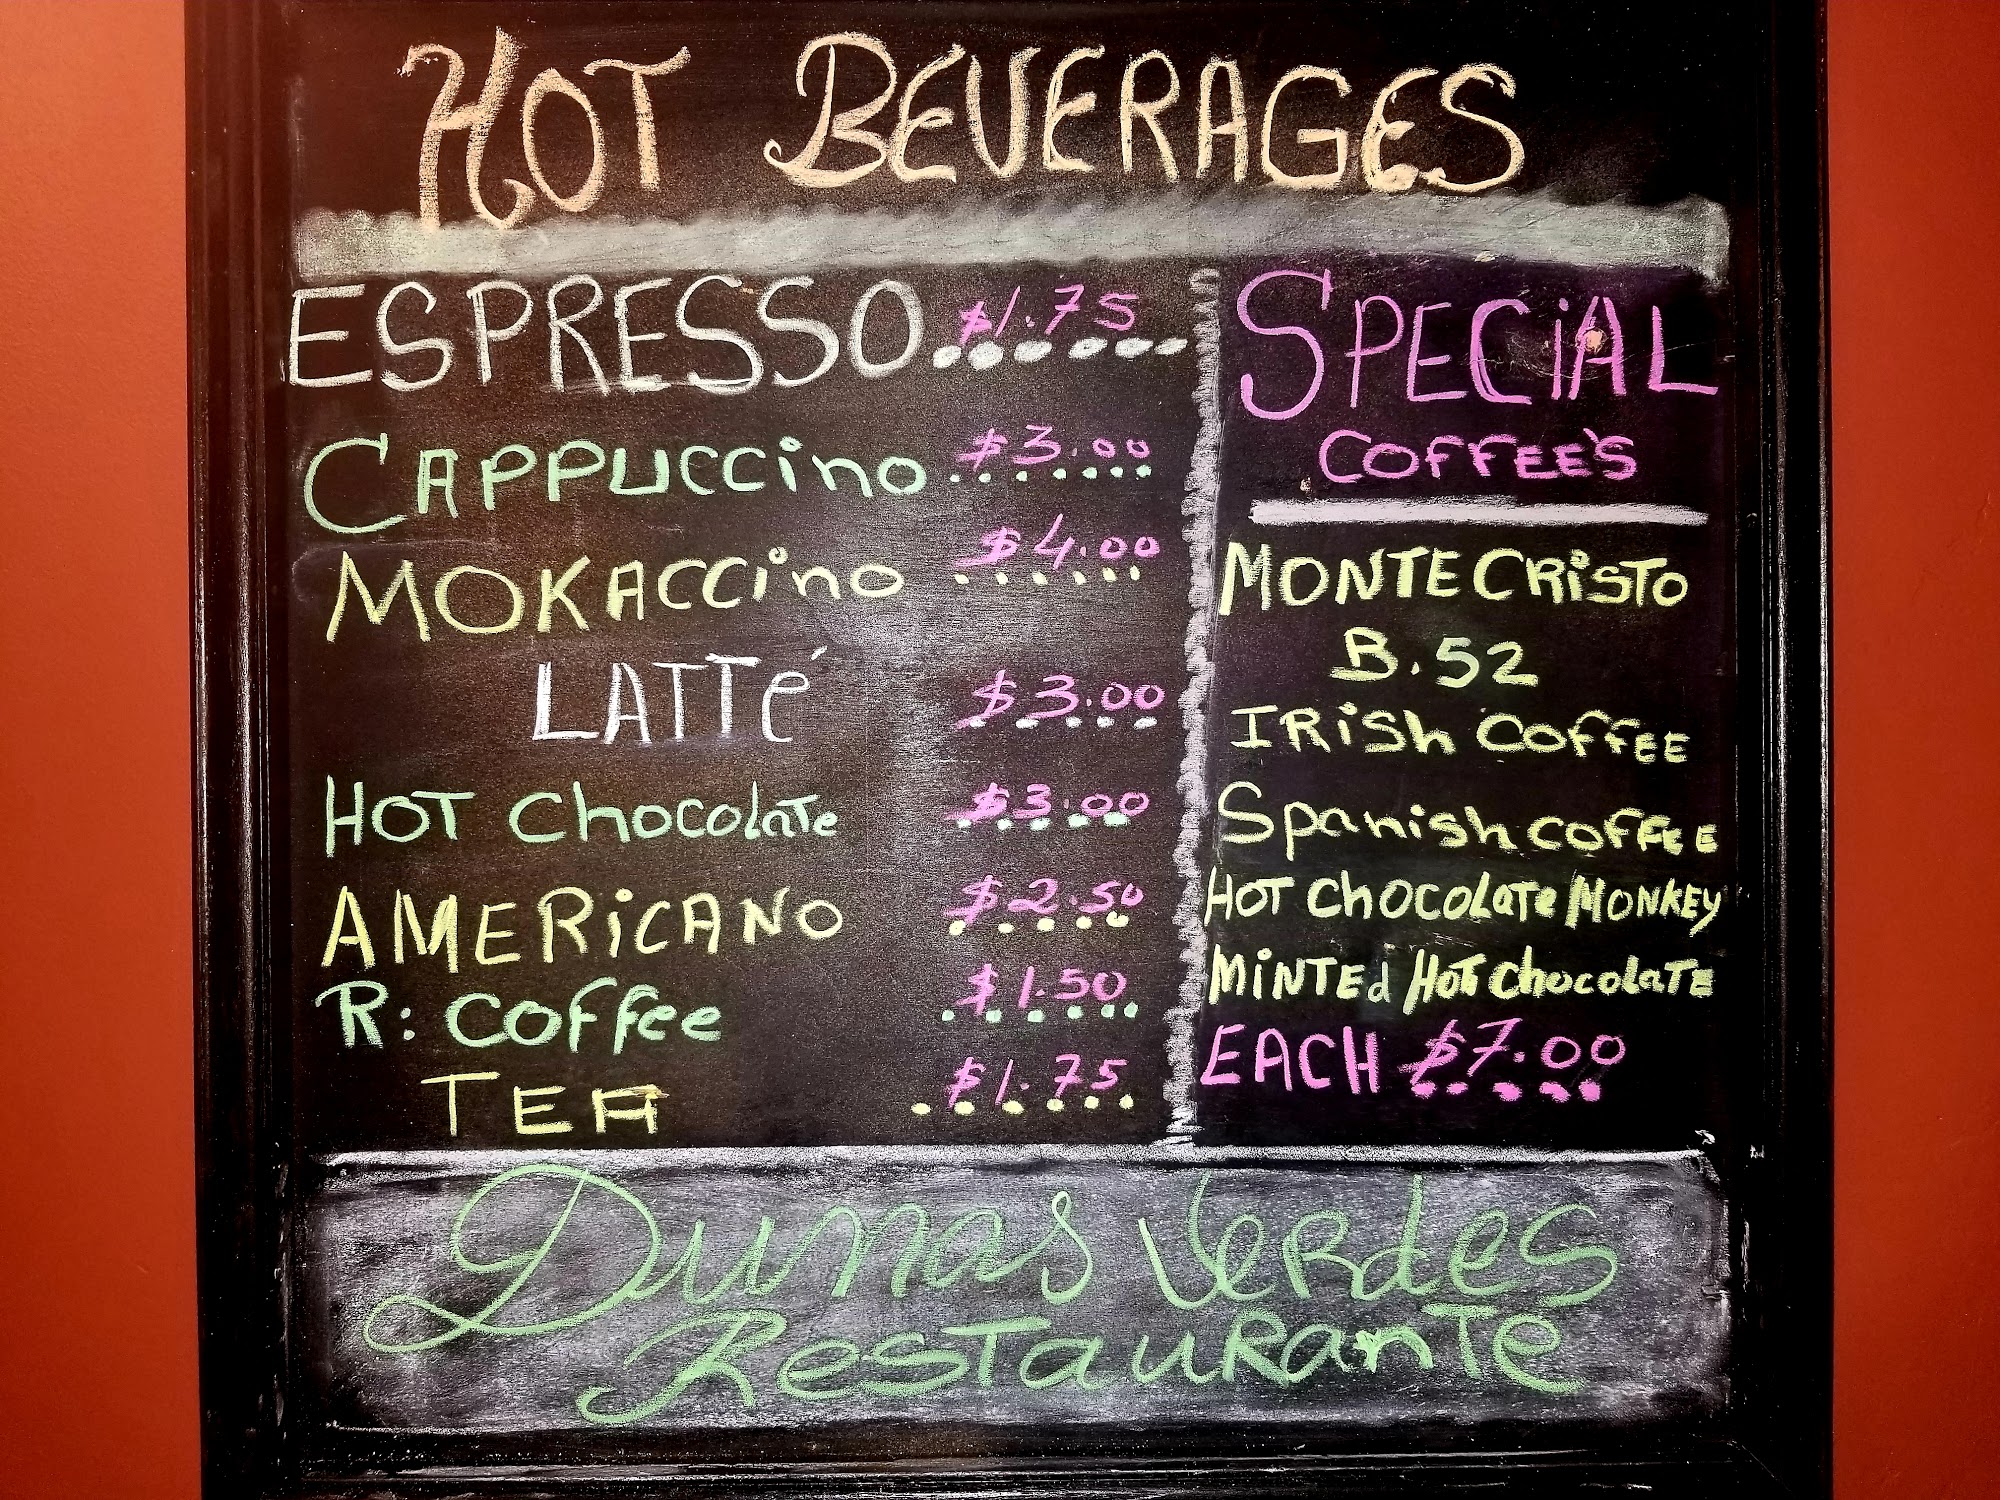 HOT BEVERAGES
ESPRESSO $1.75
CAPPUCCino $3.00
MOKACCino $4.00
LATTé $3.00
HOT Chocolate $3.00
AMERiCANO $2.50
R: Coffee $1.50
TEA $1.75
SPECiAL
COFFEE'S
MONTECRiSTO
B.52
IRish Coffee
Spanish Coffee
HOT Chocolate/MONKEY
MiNTEd Hot chocolate
EACH $7.00
Dunas Verdes
Restaurante